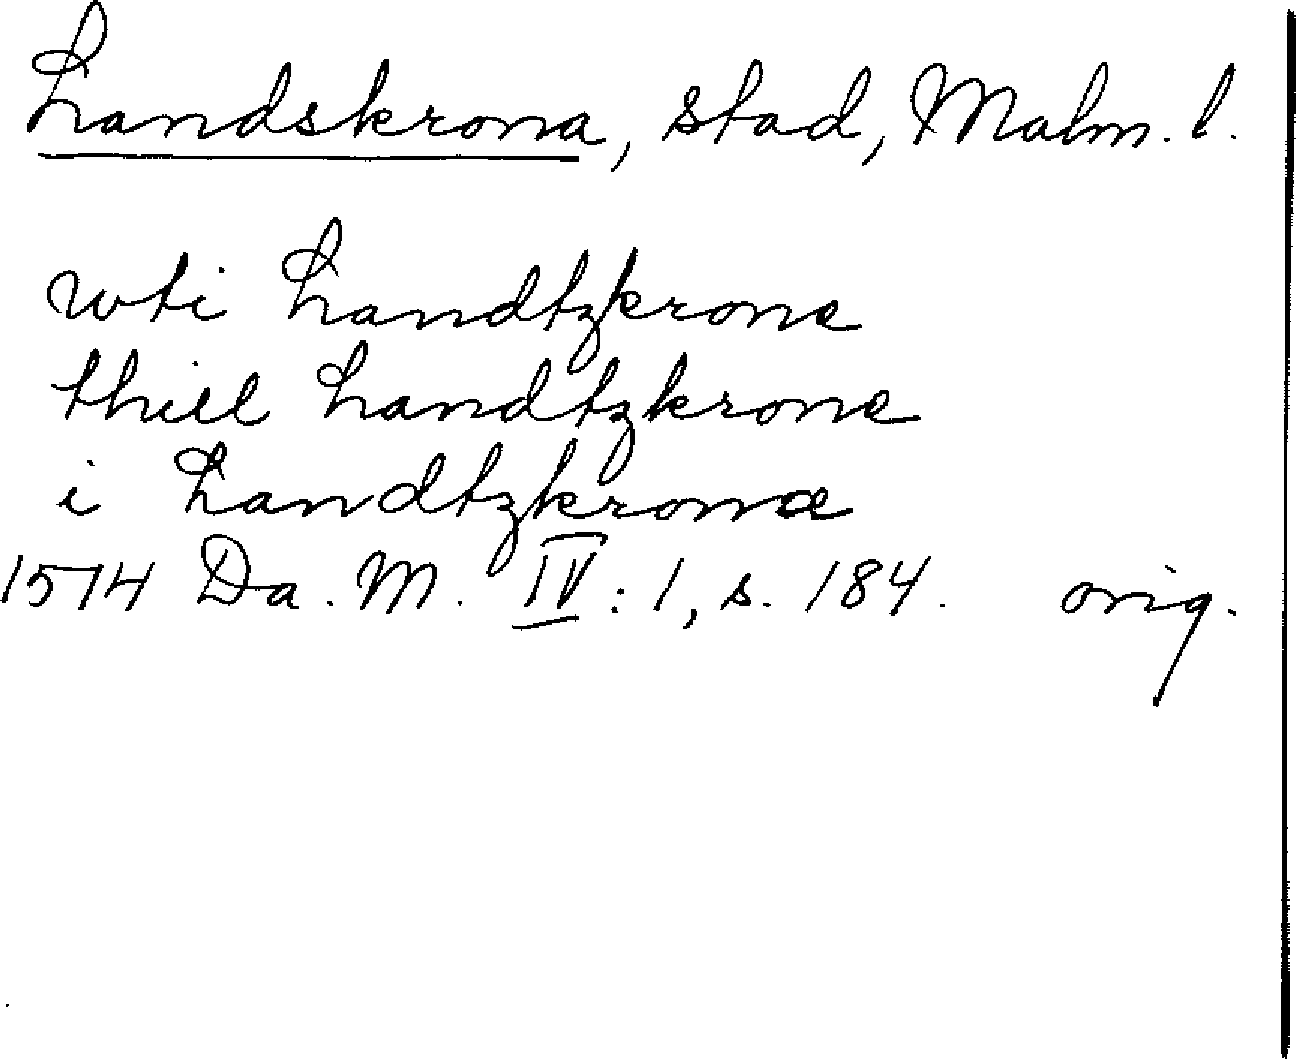 Landskrona, stad, Malm. l.
wti Landtzkrone
thiel Landtzkrone
i Landtzkronæ
1574 Da. M. IV: 1, s. 184. orig.